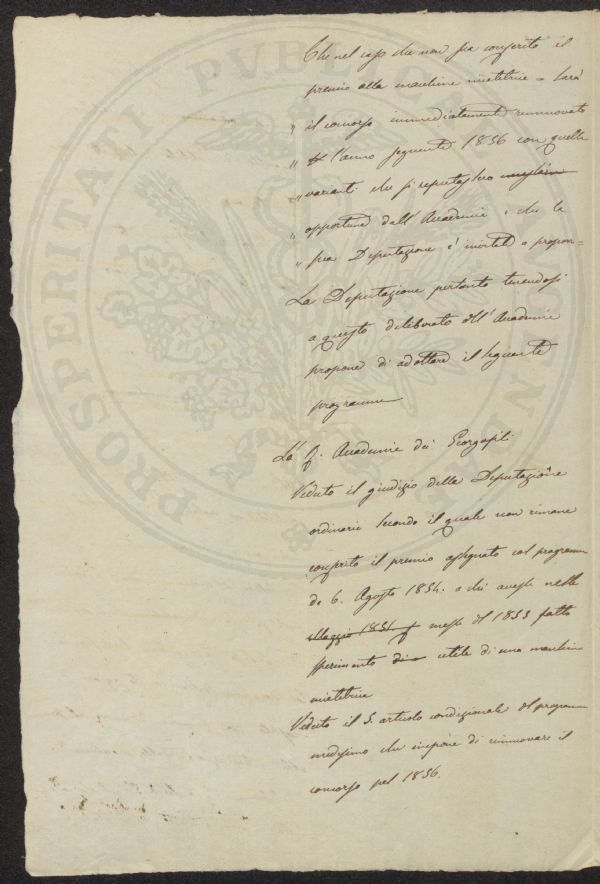 Che nel caso che non sia conferito il
premio alla macchina mietitrice sarà
„ il concorso immediatamente rinnuovato
„ l'anno seguente 1856 con quelle
„ varianti che si reputassero
„ opportune dall'Accademia, che la
„ sua Deputazione è invitata a propor=
La Deputazione pertanto tenendosi
a questo deliberato dell'Accademia
propone di adottare il seguente
programma
La R. Accademia dei Georgofili
Veduto il giudizio della Deputazione
ordinaria secondo il quale non rimane
conferito il premio assegnato col programma
de 6. Agosto 1854. a chi avesse nelle
messe del 1855 fatto
sperimento utile di una macchina
mietitrice
Veduto il 5. articolo condizionale del programma
medesimo che impone di rinnuovare il
concorso pel 1856.
PROSPERITATI PVBLICAE